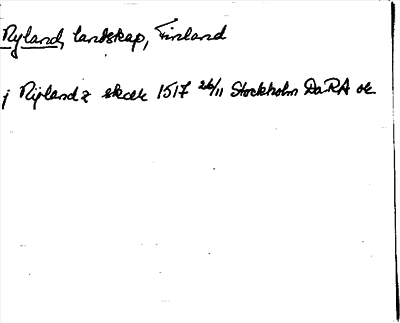 Nyland, landskap, Finland
j Nijlandz skær 1517 26/11 Stockholm DaRA or